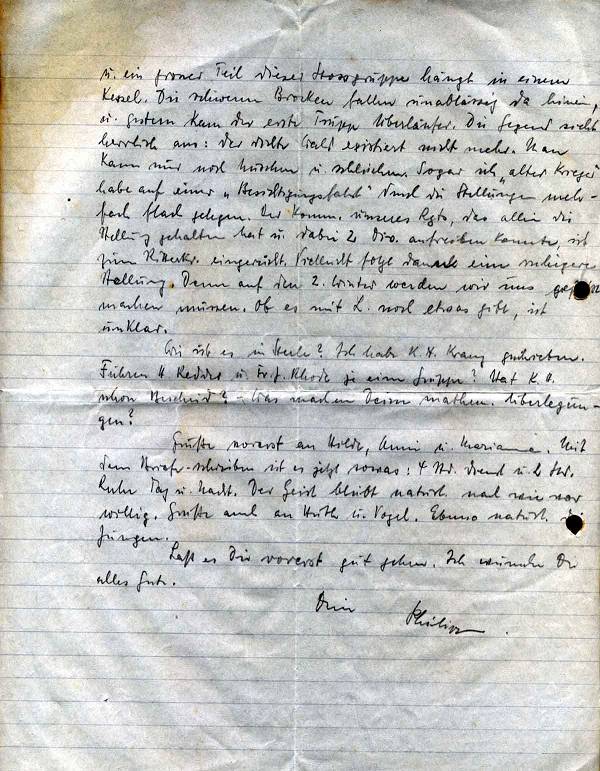 u. ein grosser Teil dieser Stossgruppe hängt in einem
Kessel. Die schweren Brocken fallen unablässig da hinein,
u. gestern kam der erste Trupp Überläufer. Die Gegend sieht
herrlich aus: der dichte Wald existiert nicht mehr. Man
kann nur noch huschen u. schleichen. Sogar ich „alter Krieger“
habe auf einer „Besichtigungsfahrt“ durch die Stellungen mehr-
fach flach gelegen. Der Komm. unseres Rgts, das allein die
Stellung gehalten hat u. dabei 2 Div. aufreiben konnte, ist
zum Ritterkr. eingereicht. Vielleicht folgt danach eine ruhigere
Stellung. Denn auf den 2. Winter werden wir uns
machen müssen. Ob es mit L. noch etwas gibt, ist
unklar.
Wie ist es in Steele? Ich habe K. H. Kranz geschrieben.
Führen H. u. Fr. J. Rhode je eine Gruppe? Hat K. H.
schon Bescheid? – Was machen Deine mathem. Überlegun-
gen?
Grüße vorerst an Hilde, Anni u. Marianne. Mit
dem Briefe-schreiben ist es jetzt sowas: 4 Std. Dienst u. 2 Std.
Ruhe Tag u. Nacht. Der Geist bleibt natürl. nach wie vor
willig. Grüße auch an Huth u. Vogel. Ebenso natürl.
Jungen.
Laß es Dir vorerst gut gehen. Ich wünsche Dir
alles Gute.
Dein Philipp.